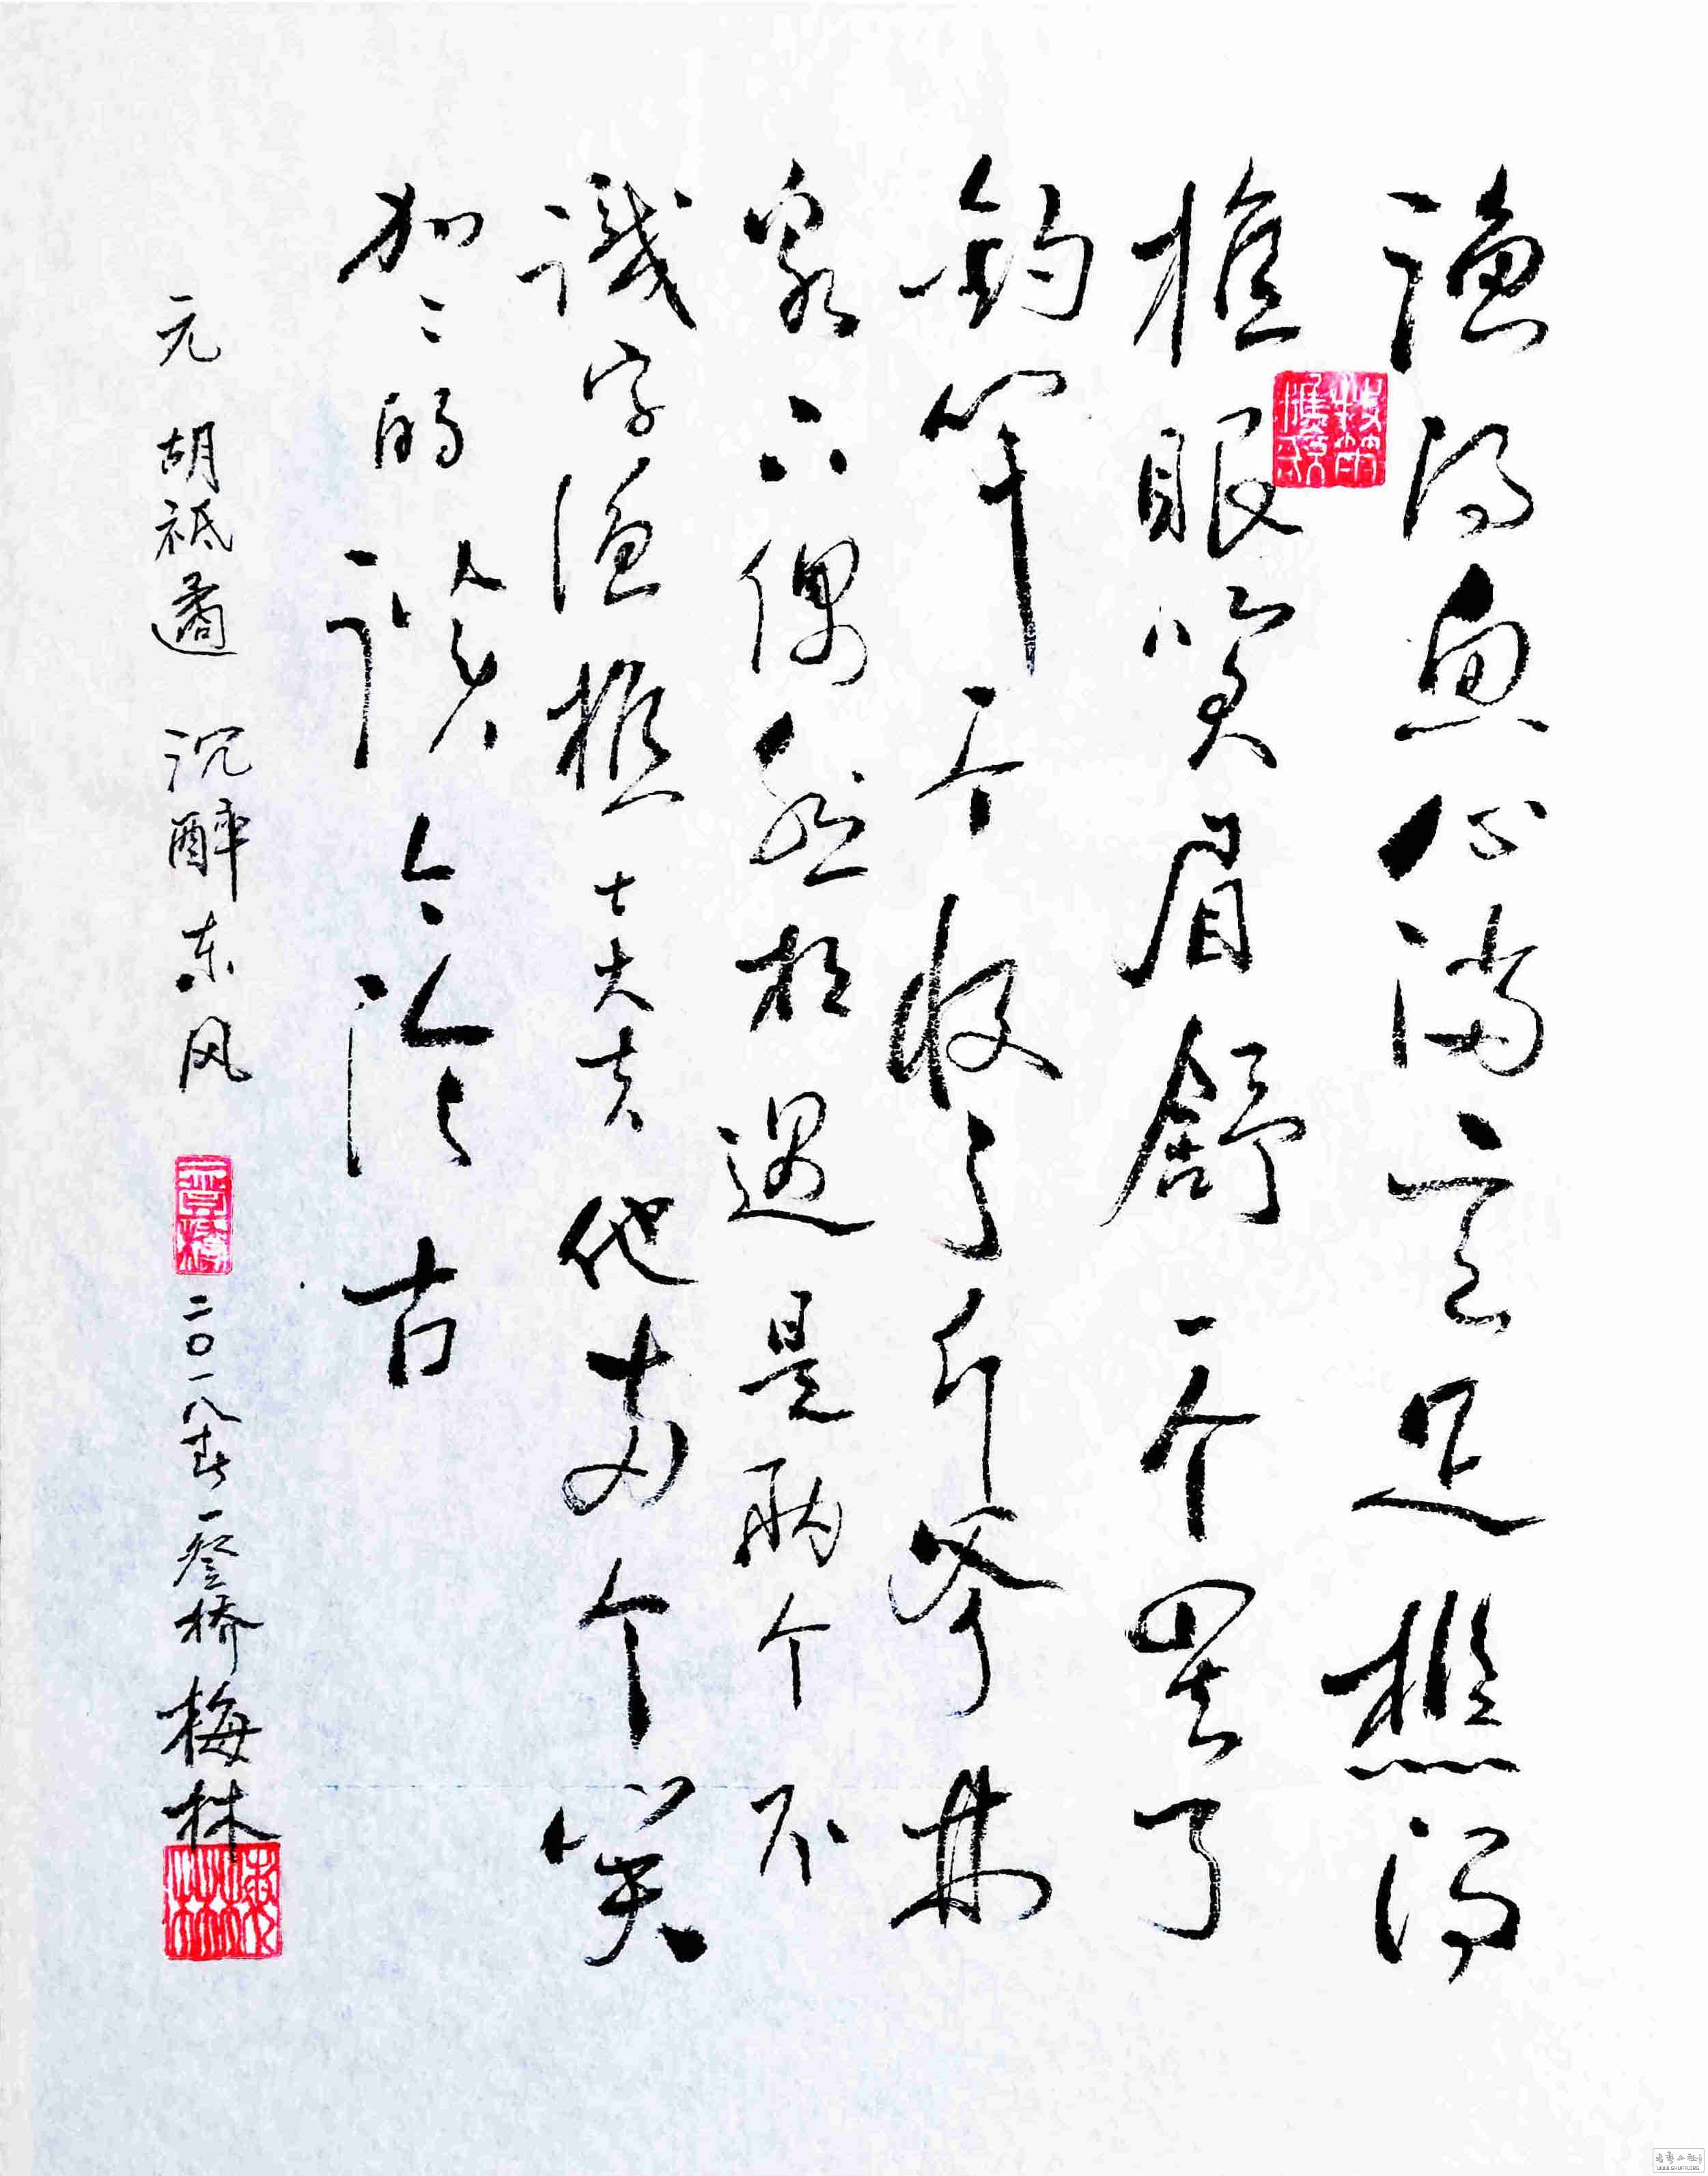 渔得鱼心满意足樵得
樵眼笑眉舒一个罢了
钓竿一个收了斤斧林
泉下偶然相遇是两个不
識字渔樵士大夫他两个笑
加々的谈今论古
元 胡祗遹 沉醉东风 二〇一八春 一登桥梅林